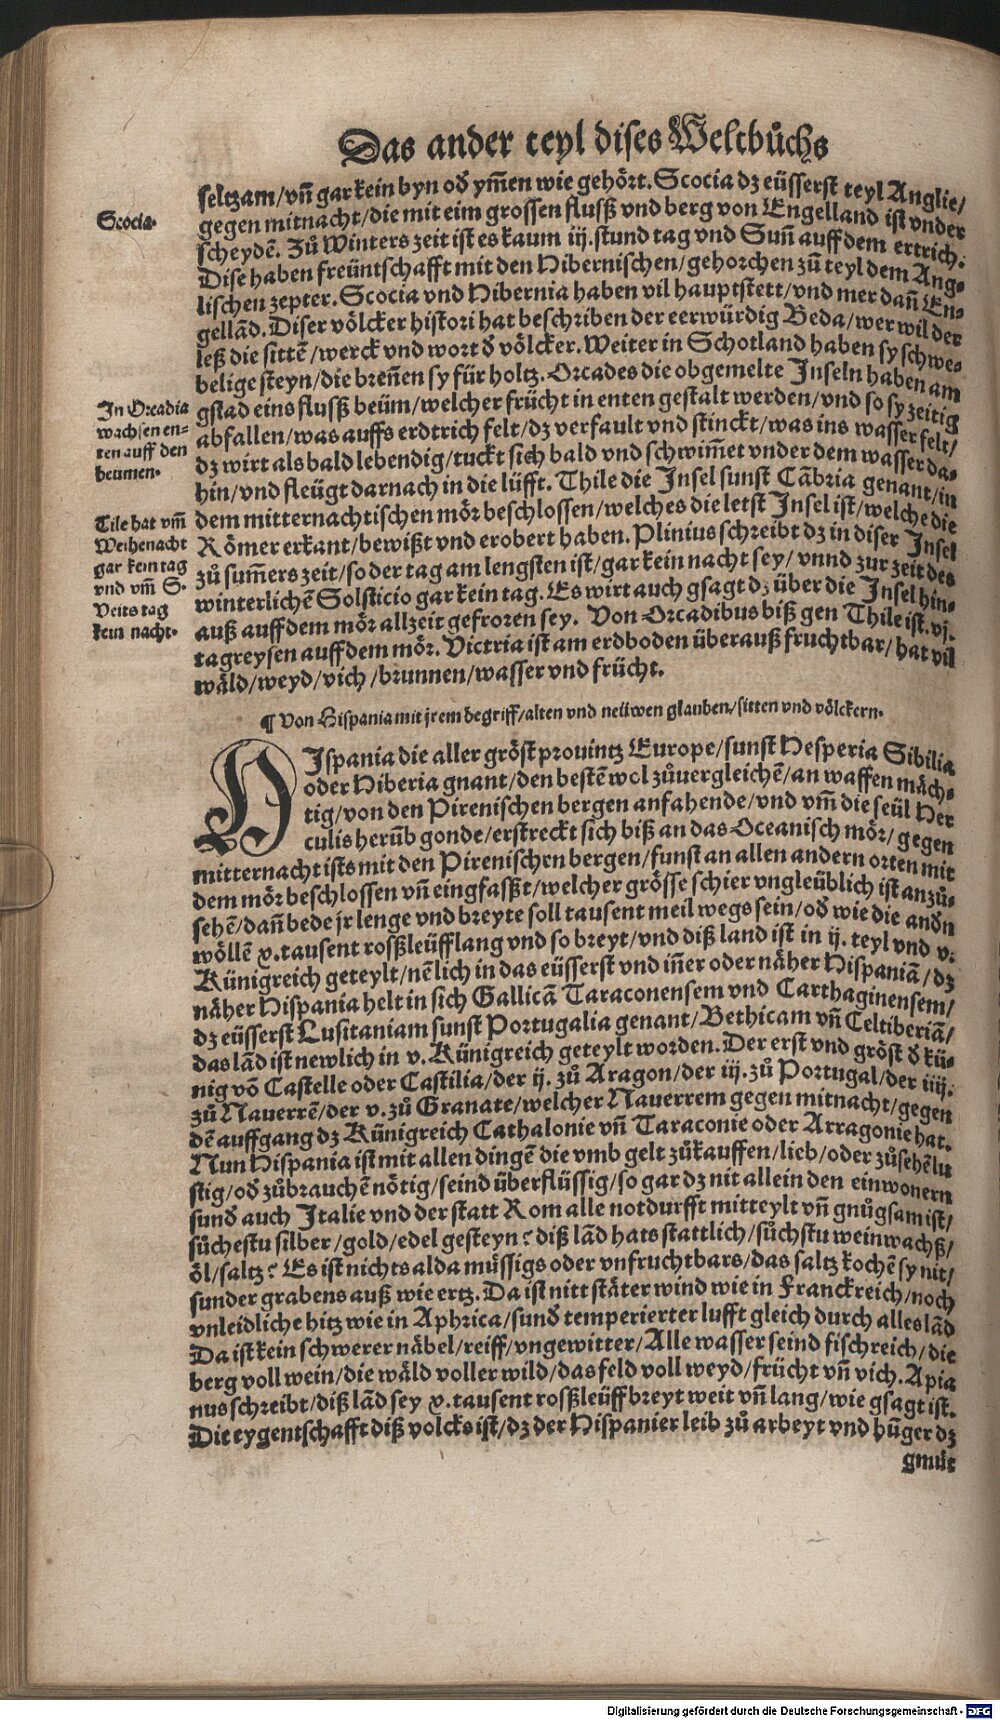 Das ander teyl dises Weltbůchs
seltzam/vñ gar kein byn oď ymẽn wie gehört. Scocia dz eüsserst teyl Anglie/
Scocia.
gegen mitnacht/die mit eim grossen flusß vnd berg von Engelland ist vnder
scheydẽ. Zů Winters zeit ist es kaum iij. stund tag vnd Suñ auff dem ertrich.
Dise haben freüntschafft mit den Hibernischen/gehorchen zů teyl dem Ang-
lischen zepter. Scocia vnd Hibernia haben vil hauptstett/vnd mer dañ En-
gellãd. Diser völcker histori hat beschriben der eerwürdig Beda/wer wil der
leß die sittẽ/werck vnd wort ď völcker. Weiter in Schotland haben sy schwe-
belige steyn/die breñen sy für holtz. Orcades die obgemelte Inseln haben am
In Orcadia
wachsen en-
ten auff den
beumen.
gstad eins flusß beüm/welcher frücht in enten gestalt werden/vnd so sy zeitig
abfallen/was auffs erdtrich felt/dz verfault vnd stinckt/was ins wasser felt/
dz wirt als bald lebendig/tuckt sich bald vnd schwim̃et vnder dem wasser da-
hin/vnd fleügt darnach in die lüfft. Thile die Insel sunst Cãbria genant/in
Tile hat vm̃
Weihenacht
gar kein tag
vnd vm̃ S.
Veits tag
kein nacht.
dem mitternachtischen mör beschlossen/welches die letst Insel ist/welche die
Römer erkant/bewißt vnd erobert haben. Plinius schreibt dz in diser Insel
zů sum̃ers zeit/so der tag am lengsten ist/gar kein nacht sey/vnnd zur zeit des
winterlichẽ Solsticio gar kein tag. Es wirt auch gsagt dz über die Insel hin-
auß auff dem mör allzeit gefroren sey. Von Orcadibus biß gen Thile ist. vj.
tagreysen auff dem mör. Victria ist am erdboden überauß fruchtbar/hat vil
wäld/weyd/vich/brunnen/wasser vnd frücht.
¶ Von Hispania mit jrem begriff/alten vnd neüwen glauben/sitten vnd völckern.
HIspania die aller gröst prouintz Europe/sunst Hesperia Sibilia
oder Hiberia gnant/den bestẽ wol zůuergleichẽ/an waffen mäch-
tig/von den Pirenischen bergen anfahende/vnd vm̃ die seül Her
culis herũb gonde/erstreckt sich biß an das Oceanisch mör/gegen
mitternacht ists mit den Pirenischen bergen/sunst an allen andern orten mit
dem mör beschlossen vñ eingfasßt/welcher grösse schier vngleüblich ist anzů-
sehẽ/dañ bede jr lenge vnd breyte soll tausent meil wegs sein/oď wie die andn
wöllẽ v. tausent rosßleüff lang vnd so breyt/vnd diß land ist in ij. teyl vnd v.
Künigreich geteylt/nẽlich in das eüsserst vnd iñer oder näher Hispaniã/dz
näher Hispania helt in sich Gallicã Taraconensem vnd Carthaginensem/
dz eüsserst Lusitaniam sunst Portugalia genant/Bethicam vñ Celtiberiã/
das lãd ist newlich in v. Künigreich geteylt worden. Der erst vnd gröst ď kü-
nig võ Castelle oder Castilia/der ij. zů Aragon/der iij. zů Portugal/der iiij.
zů Nauerrẽ/der v. zů Granate/welcher Nauerrem gegen mitnacht/gegen
dẽ auffgang dz Künigreich Cathalonie vñ Taraconie oder Arragonie hat.
Nun Hispania ist mit allen dingẽ die vmb gelt zůkauffen/lieb/oder zůsehẽ lu
stig/oď zůbrauchẽ nötig/seind überflüssig/so gar dz nit allein den einwonern
sunď auch Italie vnd der statt Rom alle notdurfft mitteylt vñ gnůgsam ist/
sůchestu silber/gold/edel gesteyn? diß lãd hats stattlich/sůchstu weinwachß/
öl/saltz? Es ist nichts alda müssigs oder vnfruchtbars/das saltz kochẽ sy nit/
sunder grabens auß wie ertz. Da ist nitt stäter wind wie in Franckreich/noch
vnleidliche hitz wie in Aphrica/sunď temperierter lufft gleich durch alles lãd
Da ist kein schwerer näbel/reiff/vngewitter/Alle wasser seind fischreich/die
berg voll wein/die wäld voller wild/das feld voll weyd/frücht vñ vich. Apia
nus schreibt/diß lãd sey v. tausent rosßleüff breyt weit vñ lang/wie gsagt ist.
Die eygentschafft diß volcks ist/dz der Hispanier leib zů arbeyt vnd hũger dz
gmüt
Digitalisierung gefördert durch die Deutsche Forschungsgemeinschaft - DFG